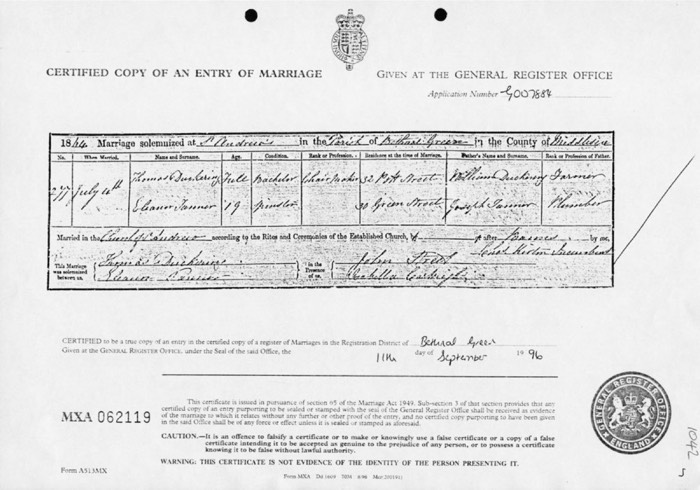 CERTIFIED COPY OF AN ENTRY OF MARRIAGE
GIVEN AT THE GENERAL REGISTER OFFICE
Application Number G007884
1844 Marriage solemnized at St Andrew's in the Parish of Bethnal Green in the County of Middlesex
No. When Married. Name and Surname. Age. Condition. Rank or Profession. Residence at the time of Marriage. Father's Name and Surname. Rank or Profession of Father.
277 July Thomas Full Bachelor Chair Maker 32 Street William Farmer
Eleanor Tanner 19 Spinster 30 Green Street Joseph Tanner Plumber
Married in the Church St Andrew according to the Rites and Ceremonies of the Established Church, after Banns by me,
This Marriage was solemnized between us, Thomas in the Presence of us, John Street
Eleanor Tanner Incumbent
CERTIFIED to be a true copy of an entry in the certified copy of a register of Marriages in the Registration District of Bethnal Green
Given at the GENERAL REGISTER OFFICE, under the Seal of the said Office, the 11th day of September 19 96
MXA 062119
This certificate is issued in pursuance of section 65 of the Marriage Act 1949. Sub-section 3 of that section provides that any
certified copy of an entry purporting to be sealed or stamped with the seal of the General Register Office shall be received as evidence
of the marriage to which it relates without any further or other proof of the entry, and no certified copy purporting to have been given
in the said Office shall be of any force or effect unless it is sealed or stamped as aforesaid.
CAUTION.—It is an offence to falsify a certificate or to make or knowingly use a false certificate or a copy of a false
certificate intending it to be accepted as genuine to the prejudice of any person, or to possess a certificate
knowing it to be false without lawful authority.
WARNING: THIS CERTIFICATE IS NOT EVIDENCE OF THE IDENTITY OF THE PERSON PRESENTING IT.
Form A513MX
Form MXA
GENERAL REGISTER OFFICE
ENGLAND
1042
5